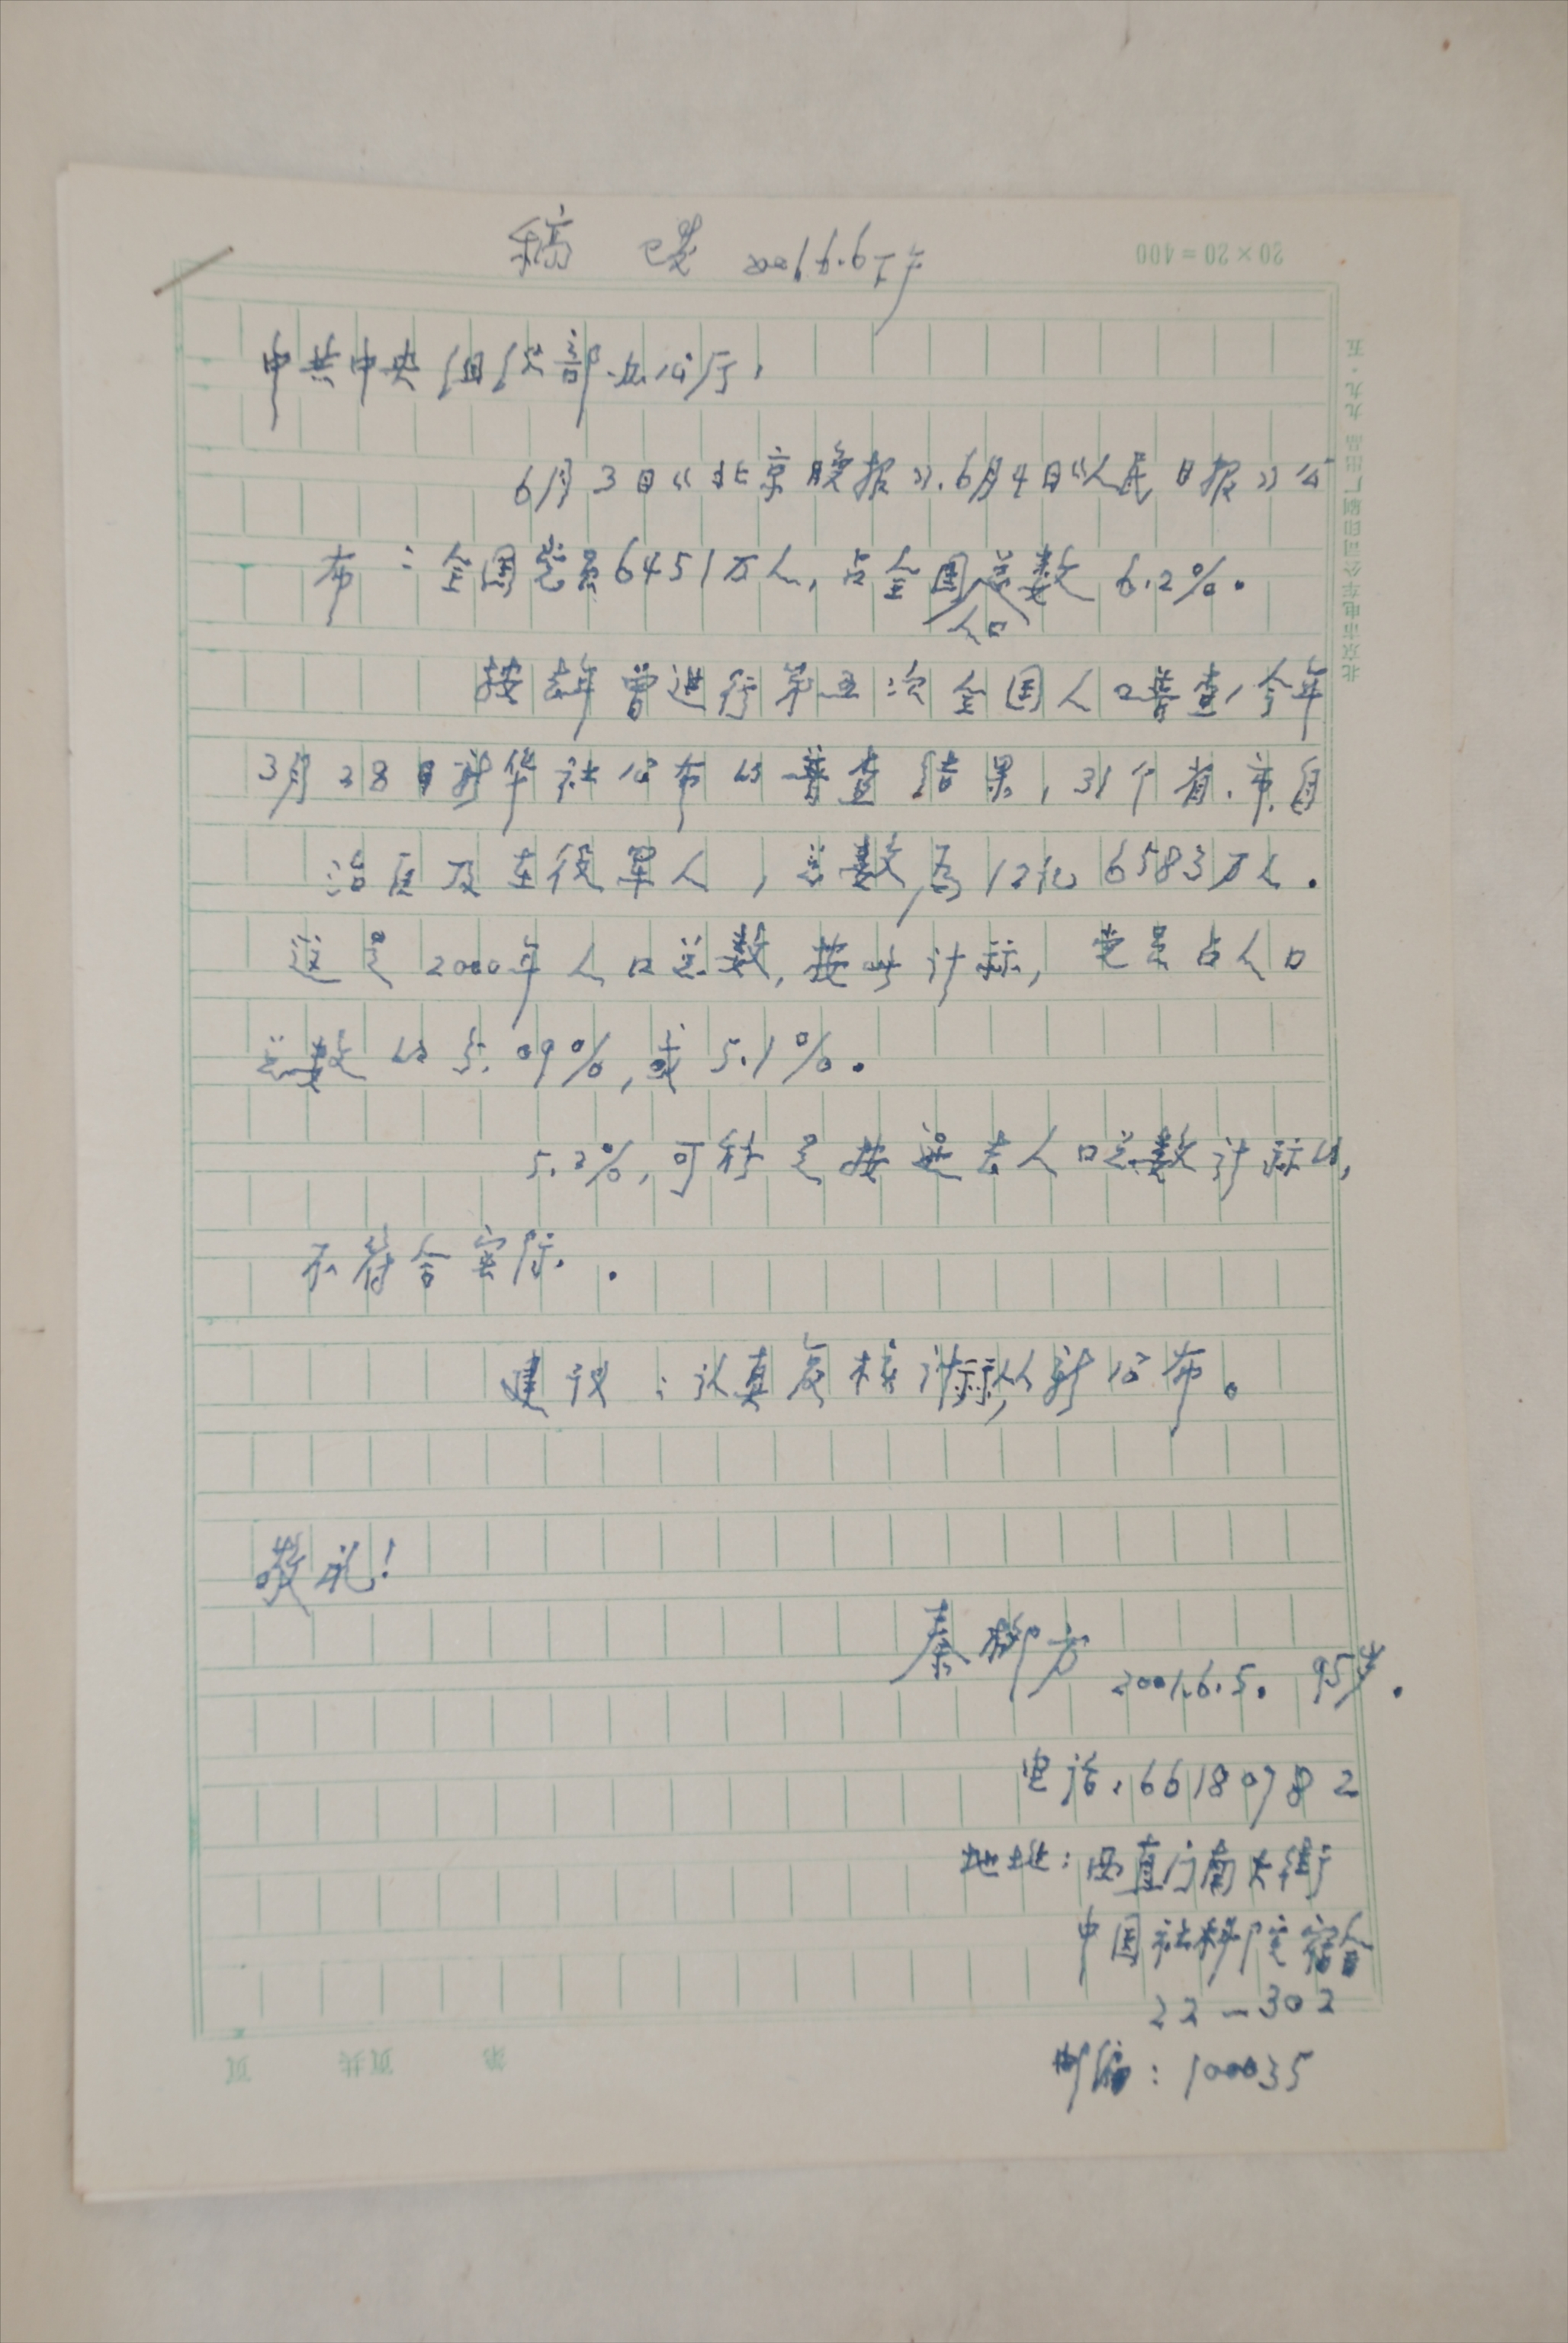 稿 已发 2001.6.6下午
20×20=400
中共中央组织部办公厅:
6月3日《北京晚报》.6月4日《人民日报》公
布:全国党员6451万人,占全国人口总数6.2%。
按去年曾进行第五次全国人口普查,今年
3月28日新华社公布的普查结果,31个省、市、自
治区及在役军人,总数为12亿6583万人.
这是2000年人口总数,按此计标,党员占人口
总数的5.09%,或5.1%。
5.2%,可称是按过去人口总数计标的,
不符合实际.
建议:认真复核计标,从新公布。
敬礼!
秦柳方 2001.6.5. 95岁.
电话:66180782
地址:西直门南大街
中国社科院宿舍
22-302
邮编:100035
北京市电车公司印刷厂出品 九九·五
第 页共 页